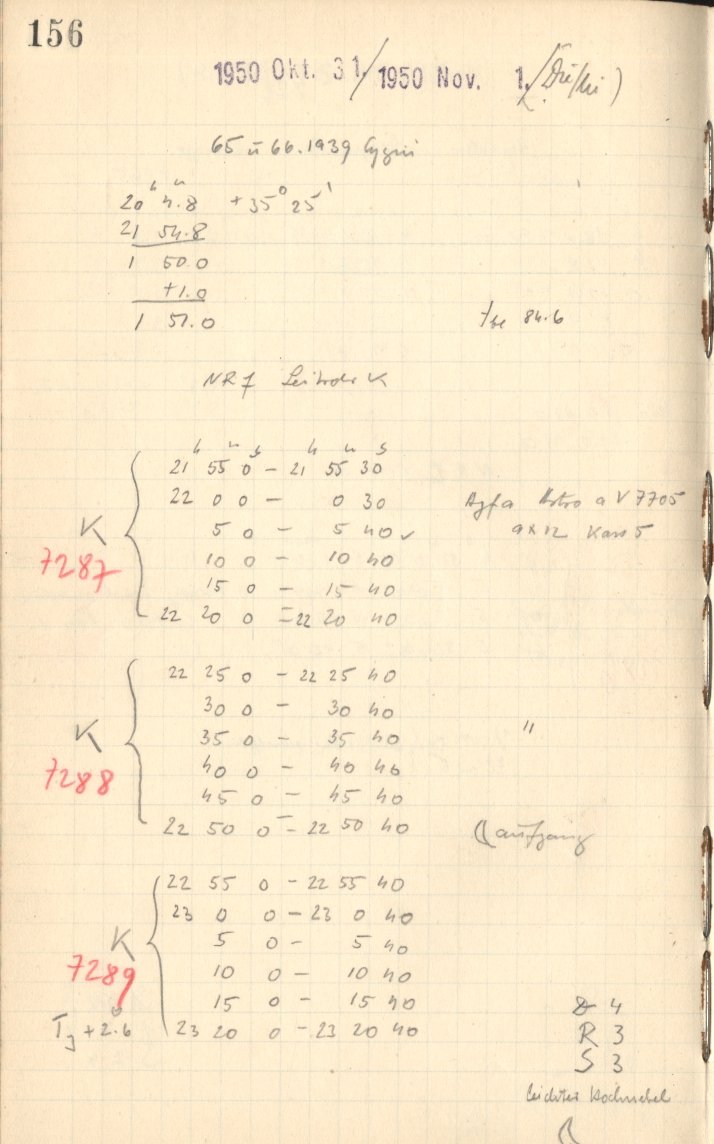 156
1950 Okt. 31/1950 Nov. 1.
65 u 66.1939 Cygni
20ʰ 4ᵐ.8 +35° 25'
21 54.8
1 50.0
+1.0
1 51.0
84.6
NR 7 K
21ʰ 55ᵐ 0ˢ - 21ʰ 55ᵐ 30ˢ
22 0 0 - 0 30 Agfa Astro a V 7705
5 0 - 5 40 ✓ 9x12 Kass 5
K 10 0 - 10 40
7287 15 0 - 15 40
22 20 0 - 22 20 40
22 25 0 - 22 25 40
30 0 - 30 40
K 35 0 - 35 40 "
7288 40 0 - 40 40
45 0 - 45 40
22 50 0 - 22 50 40 ☾ aufgang
22 55 0 - 22 55 40
23 0 0 - 23 0 40
K 5 0 - 5 40
7289 10 0 - 10 40
15 0 - 15 40 4
+2.6 23 20 0 - 23 20 40 R 3
S 3
leichter Hochnebel
☾